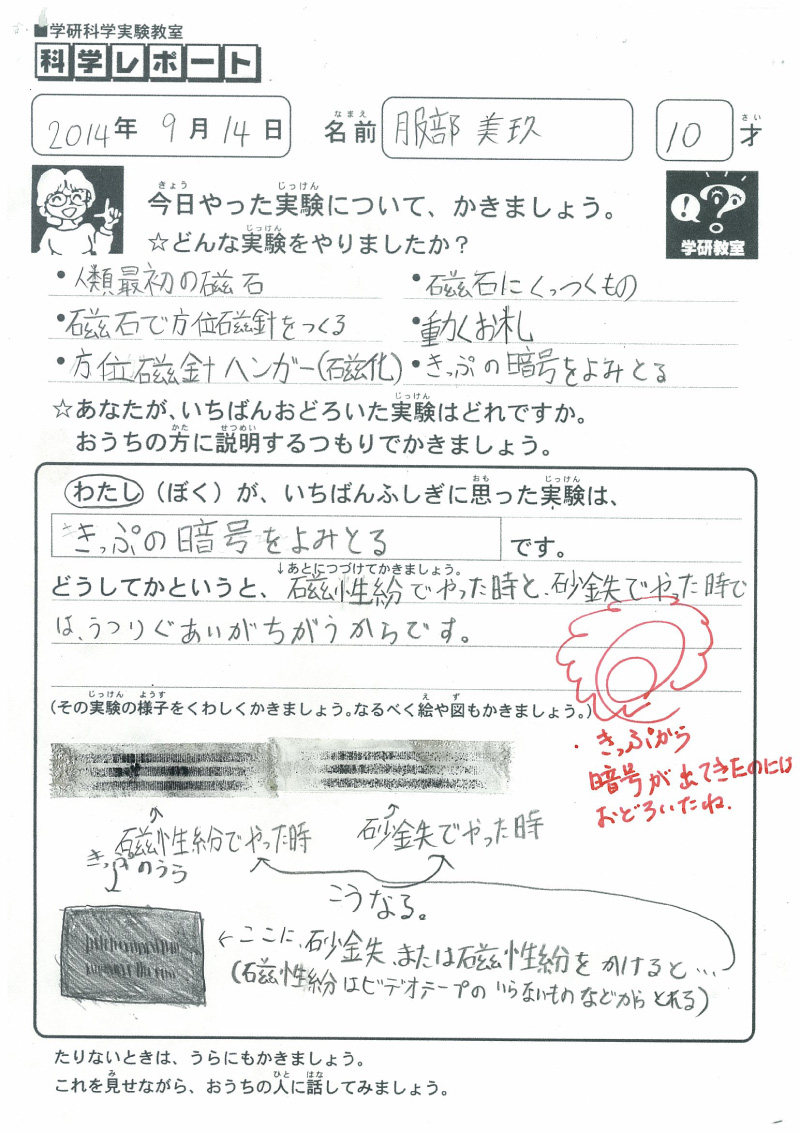 ■学研科学実験教室
科学レポート
2014年 9月 14日 名前 服部 美玖 10才
なまえ さい
きょう じっけん
今日やった実験について、かきましょう。
じっけん
☆どんな実験をやりましたか？
学研教室
・人類最初の磁石 ・磁石にくっつくもの
・磁石で方位磁針をつくる ・動くお札
・方位磁針ハンガー(磁化) ・きっぷの暗号をよみとる
じっけん
☆あなたが、いちばんおどろいた実験はどれですか。
かた せつめい
おうちの方に説明するつもりでかきましょう。
おも じっけん
わたし（ぼく）が、いちばんふしぎに思った実験は、
きっぷの暗号をよみとる です。
↓あとにつづけてかきましょう。
どうしてかというと、磁性紛でやった時と、砂金失でやった時で
は、うつりぐあいがちがうからです。
じっけん ようす え ず
(その実験の様子をくわしくかきましょう。なるべく絵や図もかきましょう。)
・きっぷから
暗号が出てきたのには
おどろいたね.
磁性紛でやった時 砂金失でやった時
きっぷのうら
こうなる。
←ここに、砂金失、または磁性紛をかけると…
(磁性紛はビデオテープのいらないものなどからとれる)
たりないときは、うらにもかきましょう。
み ひと はな
これを見せながら、おうちの人に話してみましょう。